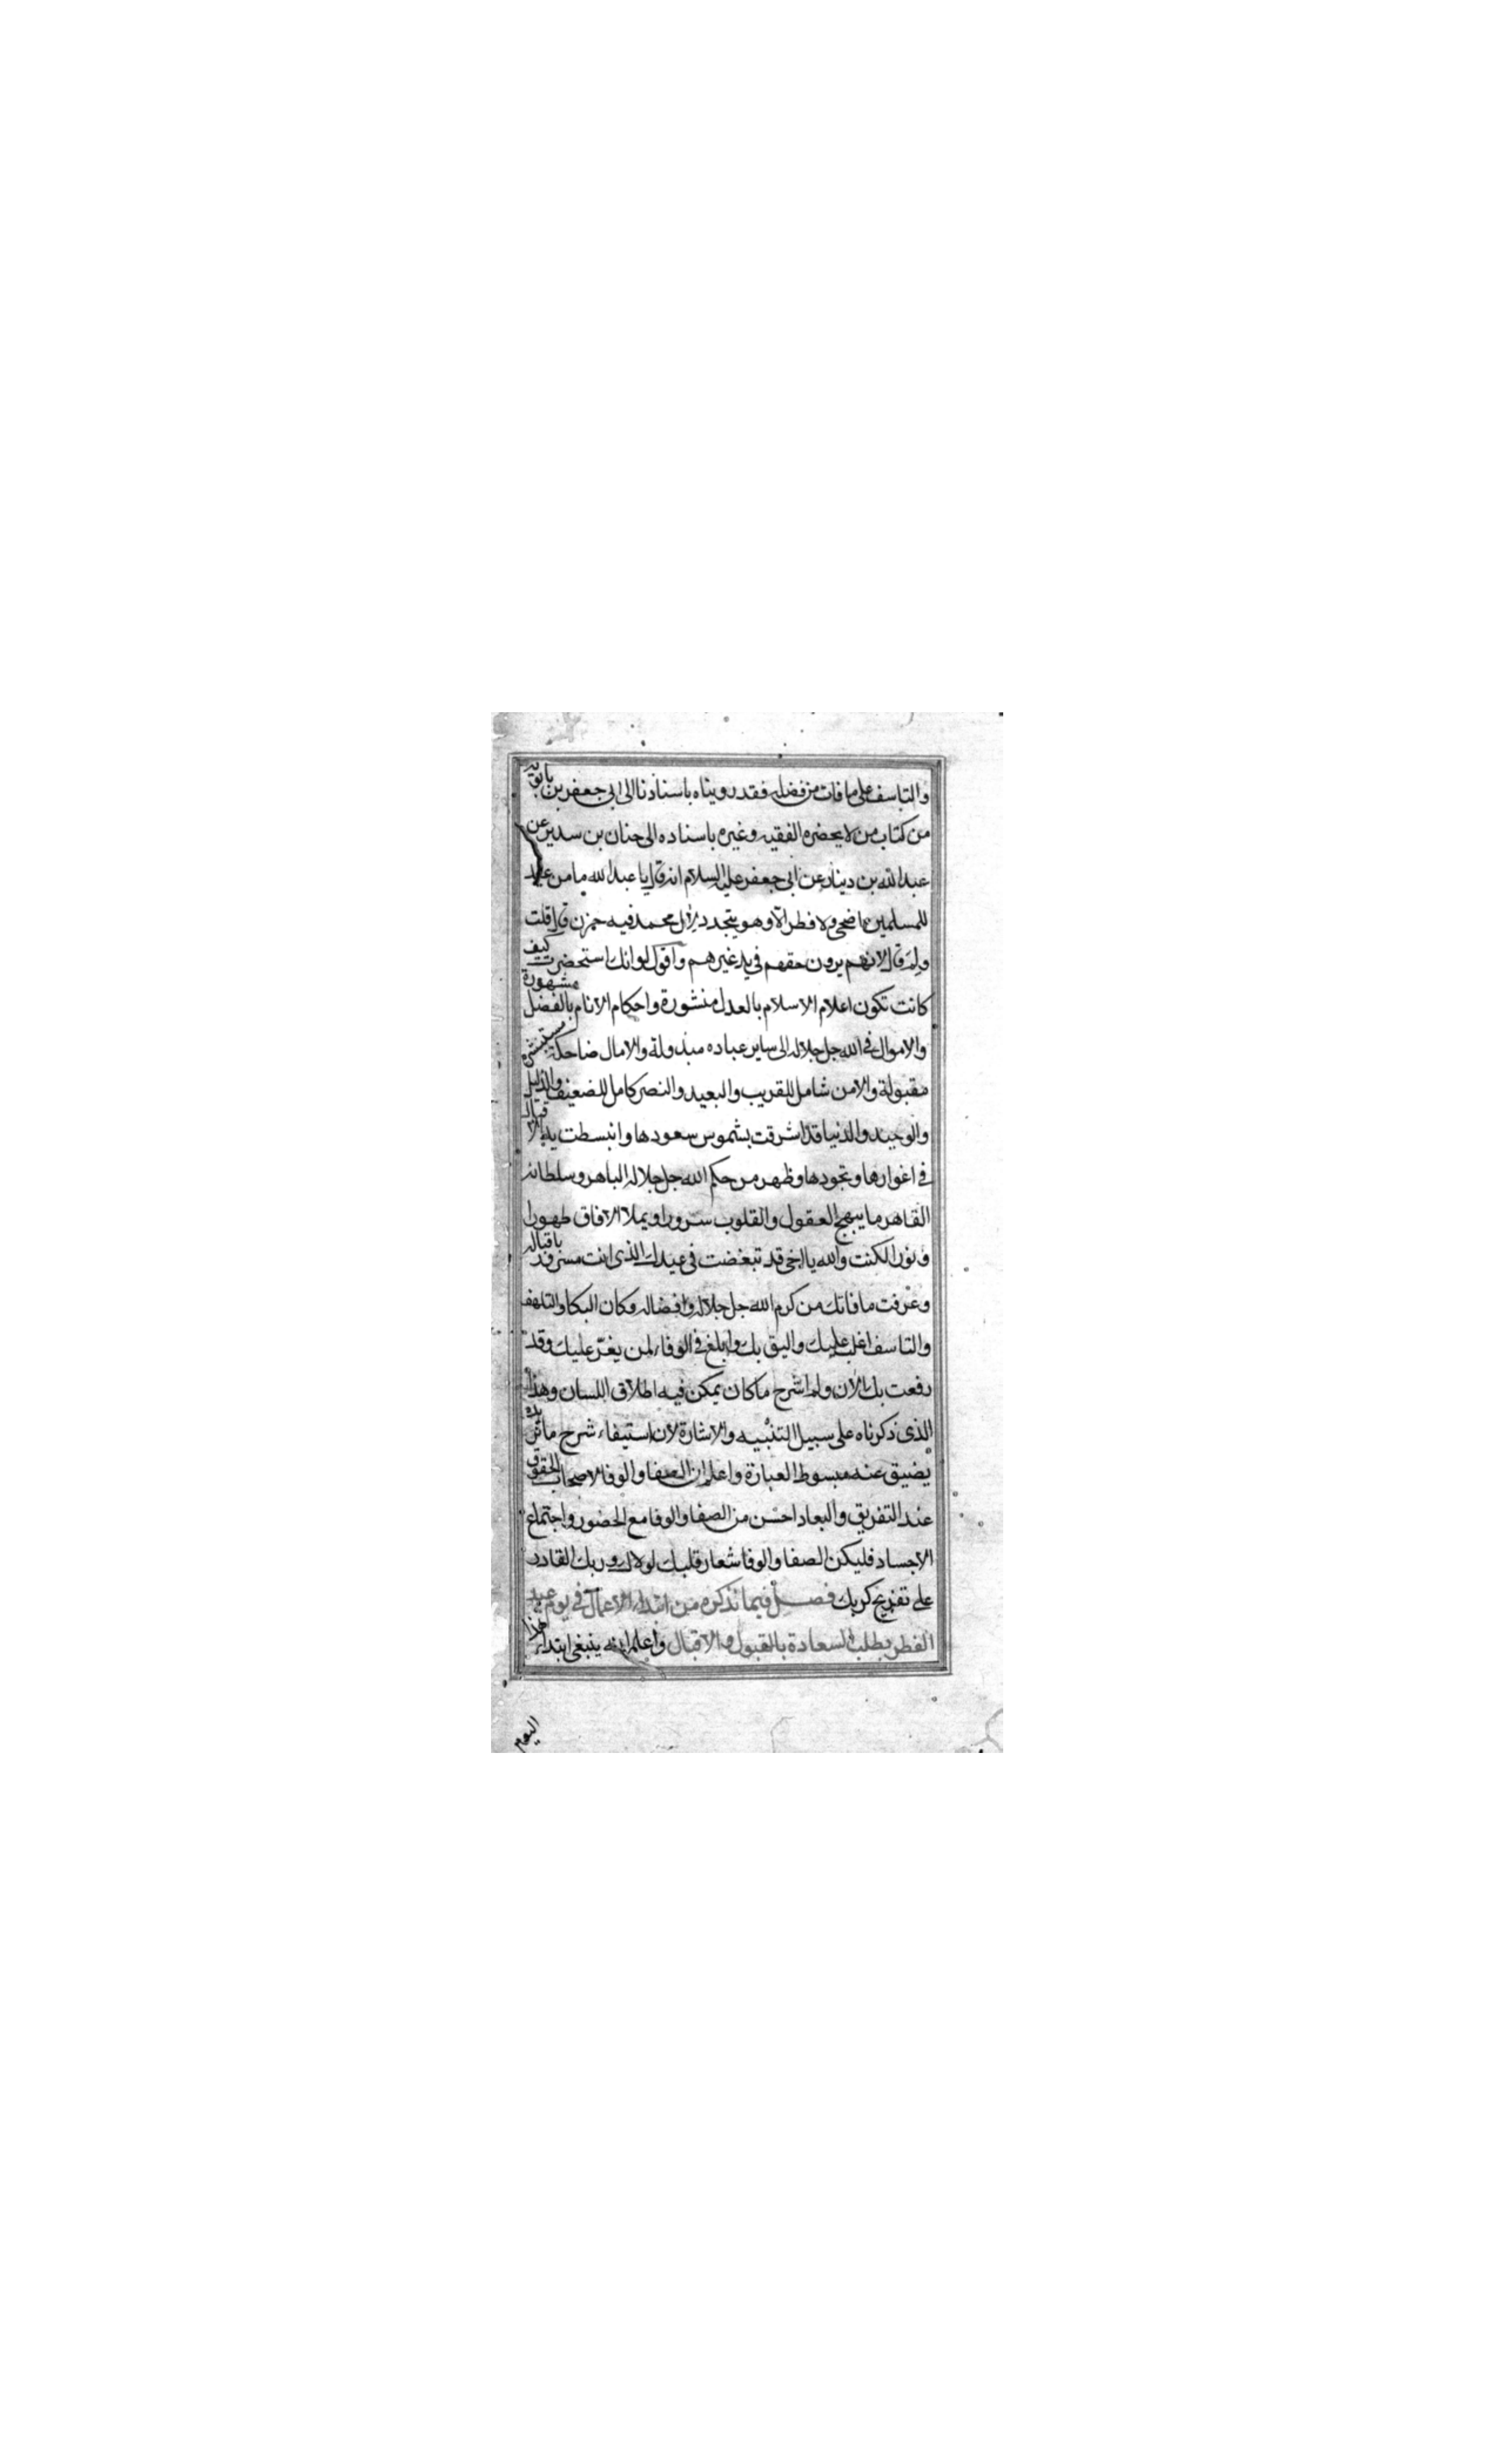 والتاسف على ما فات من فضله فقد رويناه باسنادنا الى ابى جعفر بن بابويه
من كتاب من لا يحضره الفقيه وغيره باسناده الى حنان بن سدير عن
عبد الله بن دينار عن ابى جعفر عليه السلام انه قال يا عبد الله ما من عيد
للمسلمين اضحى ولا فطر الا وهو يتجدد لال محمد فيه حزن قال قلت
ولم قال لانهم يرون حقهم في يد غيرهم واقول لو انك استحضرت كيف
كانت تكون اعلام الاسلام بالعدل منشورة واحكام الانام بالفضل مشهورة
والاموال في الله جل جلاله الى ساير عباده مبذولة والامال ضاحكة مستبشرة
مقبولة والامن شامل للقريب والبعيد والنصر كامل للضعيف والذليل
والوحيد والدنيا قد اشرقت بشموس سعودها وانبسطت يد الاقبال
في اغوارها ونجودها وظهر من حكم الله جل جلاله الباهر وسلطانه
القاهر ما يبهج العقول والقلوب سرورا ويملا الافاق ظهورا
ونورا لكنت والله يا اخى قد تنغصت في عيدك الذى انت مسرور باقباله
وعرفت ما فاتك من كرم الله جل جلاله وافضاله وكان البكا والتلهف
والتاسف اغلب عليك واليق بك وابلغ في الوفاء لمن يعز عليك وقد
رفعت بك الان ولم اشرح ما كان يمكن فيه اطلاق اللسان وهذا
الذى ذكرناه على سبيل التنبيه والاشارة لان استيفاء شرح ما نريده
يضيق عنه مبسوط العبارة واعلم ان الصفا والوفا لاصحاب الحقوق
عند التفريق والبعاد احسن من الصفا والوفا مع الحضور واجتماع
الاجساد فليكن الصفا والوفا شعار قلبك لولاك وربك القادر
على تفريج كربك فصل فيما نذكره من ابتداء الاعمال في يوم عيد
الفطر بطلب السعادة بالقبول والاقبال واعلم انه ينبغى ابتداء هذا
اليوم